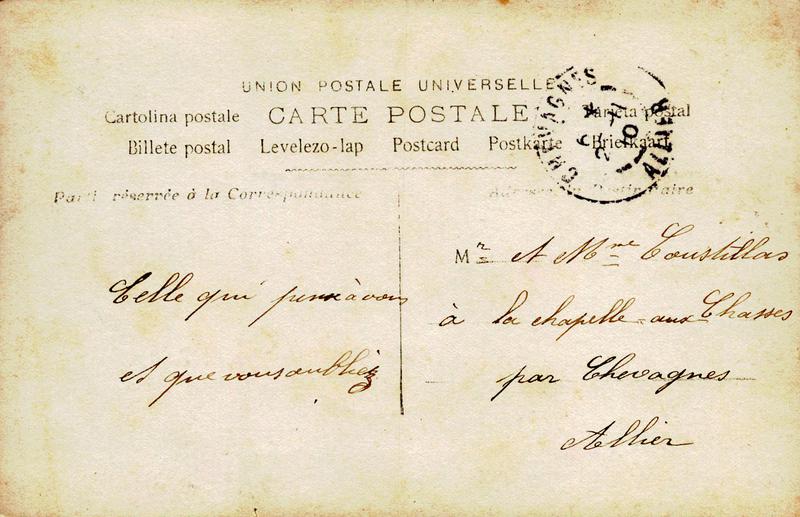 UNION POSTALE UNIVERSELLE
Cartolina postale CARTE POSTALE Tarjeta postal
Billete postal Levelezo-lap Postcard Postkarte Briefkaart
CHEVAGNES
ALLIER
Partie réservée à la Correspondance
Adresse du Destinataire
Mr et Mme Coustillas
à la chapelle aux Chasses
par Chevagnes
Allier
Celle qui pense à vous
et que vous oubliez